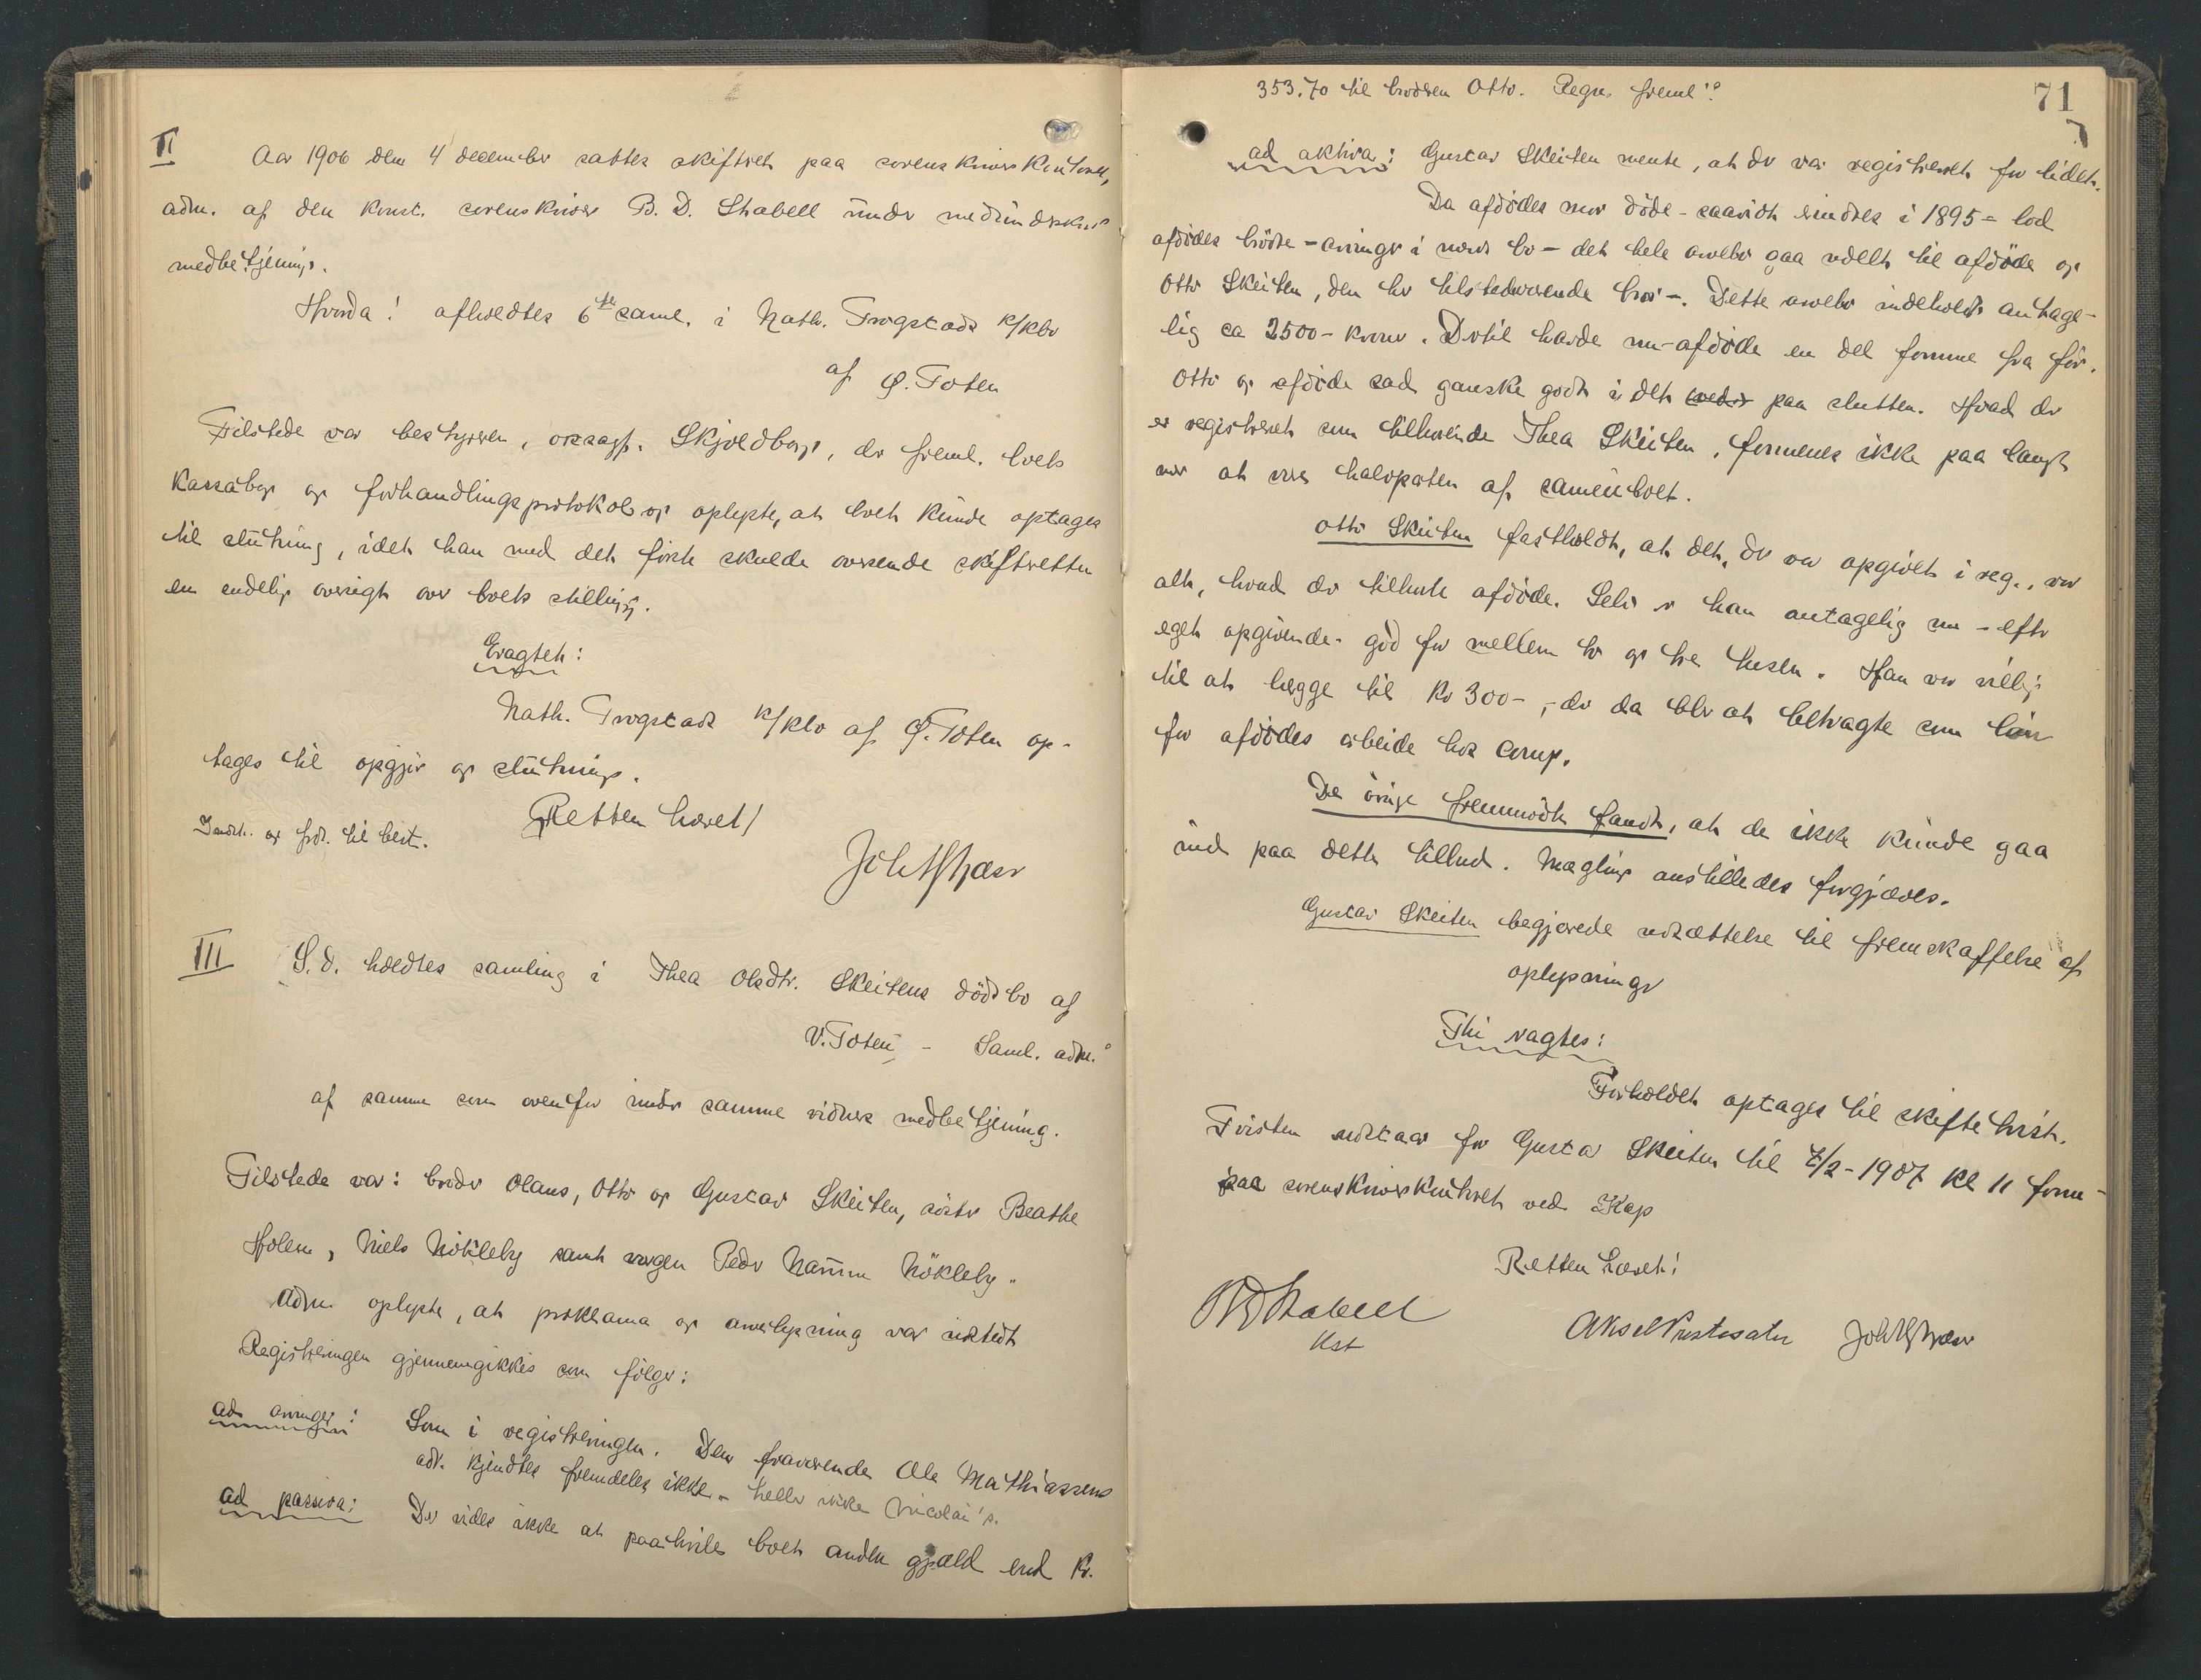 II
Aar 1906 den 4 december sattes skifteret paa sorenskriverkontoret,
adm. af den konst. sorenskriver B. D. Stabell under medunderskr.
medbetjening.
Hvorda! afholdtes 6te saml. i Nath. Frogstads k/kbo
af Ø. Toten
Tilstede var bestyreren, orsagf. Skjoldborg, der freml. boets
kassabog og forhandlingsprotokol og oplyste, at boet kunde optages
til slutning, idet han med det første skulde oversende skifteretten
en endelig oversigt over boets stilling.
Eragtet:
Nath. Frogstads k/kbo af Ø. Toten op-
tages til opgjør og slutning.
Retten hævet/
Indk. og frdr. til best.
III
S.d. holdtes samling i Thea Olsdtr. Skeitens dødsbo af
V. Toten - Saml. adm.
af samme som ovenfor under samme vidners medbetjening.
Tilstede var: brødr Olaus, Otto og Gustav Skeiten, søster Beathe
Holen, Niels Nökleby samt vergen Peder Nökleby.
Adm. oplyste, at proklama og arvelysning var udstedt
Registeringen gjennemgikkes som følger:
ad arvinger:
Som i registreringen. Den fraværende Ole Mathiassens
adr. kjendtes fremdeles ikke - heller ikke Nicolai's.
ad passiva:
Der vides ikke at paahvile boet anden gjæld end kr.
71
353.70 til broderen Otto. Regn. freml.
ad aktiva: Gustav Skeiten mente, at der var registreret for lidet.
Da afdødes mor døde - saavidt erindres i 1895 - lod
afdødes brödre - arvinger i mors bo - det hele arvebo gaa udelt til afdøde og
Otto Skeiten, den her tilstedeværende bror -. Dette arvebo indeholdt antage-
lig ca 2500 - kroner. Dertil havde nu-afdøde en del formue fra før.
Otto og afdøde sad ganske godt i det paa slutten. Hvad der
er registreret som tilhørende Thea Skeiten, formenes ikke paa langt
nær at være halvparten af sameieboet.
Otto Skeiten fastholdt, at det, der var opgivet i reg., var
alt, hvad der tilhørte afdøde. Selv er han antagelig nu - efter
eget opgivende - god for mellem to og tre tusen. Han var villig
til at lægge til kr 300 -, der da blir at betragte som løn
for afdødes arbeide hos comp.
De övrige fremmødte fandt, at de ikke kunde gaa
ind paa dette tilbud. Mægling anstilledes forgjæves.
Gustav Skeiten begjærede udsættelse til fremskaffelse af
oplysninger
Thi ragtes:
Forholdet optages til skiftetvist.
Tvisten udstaar for Gustav Skeiten til 7/2 - 1907 kl 11 form-
paa sorenskriverkontoret ved Kap
Retten hævet!
BDStabell
Kst